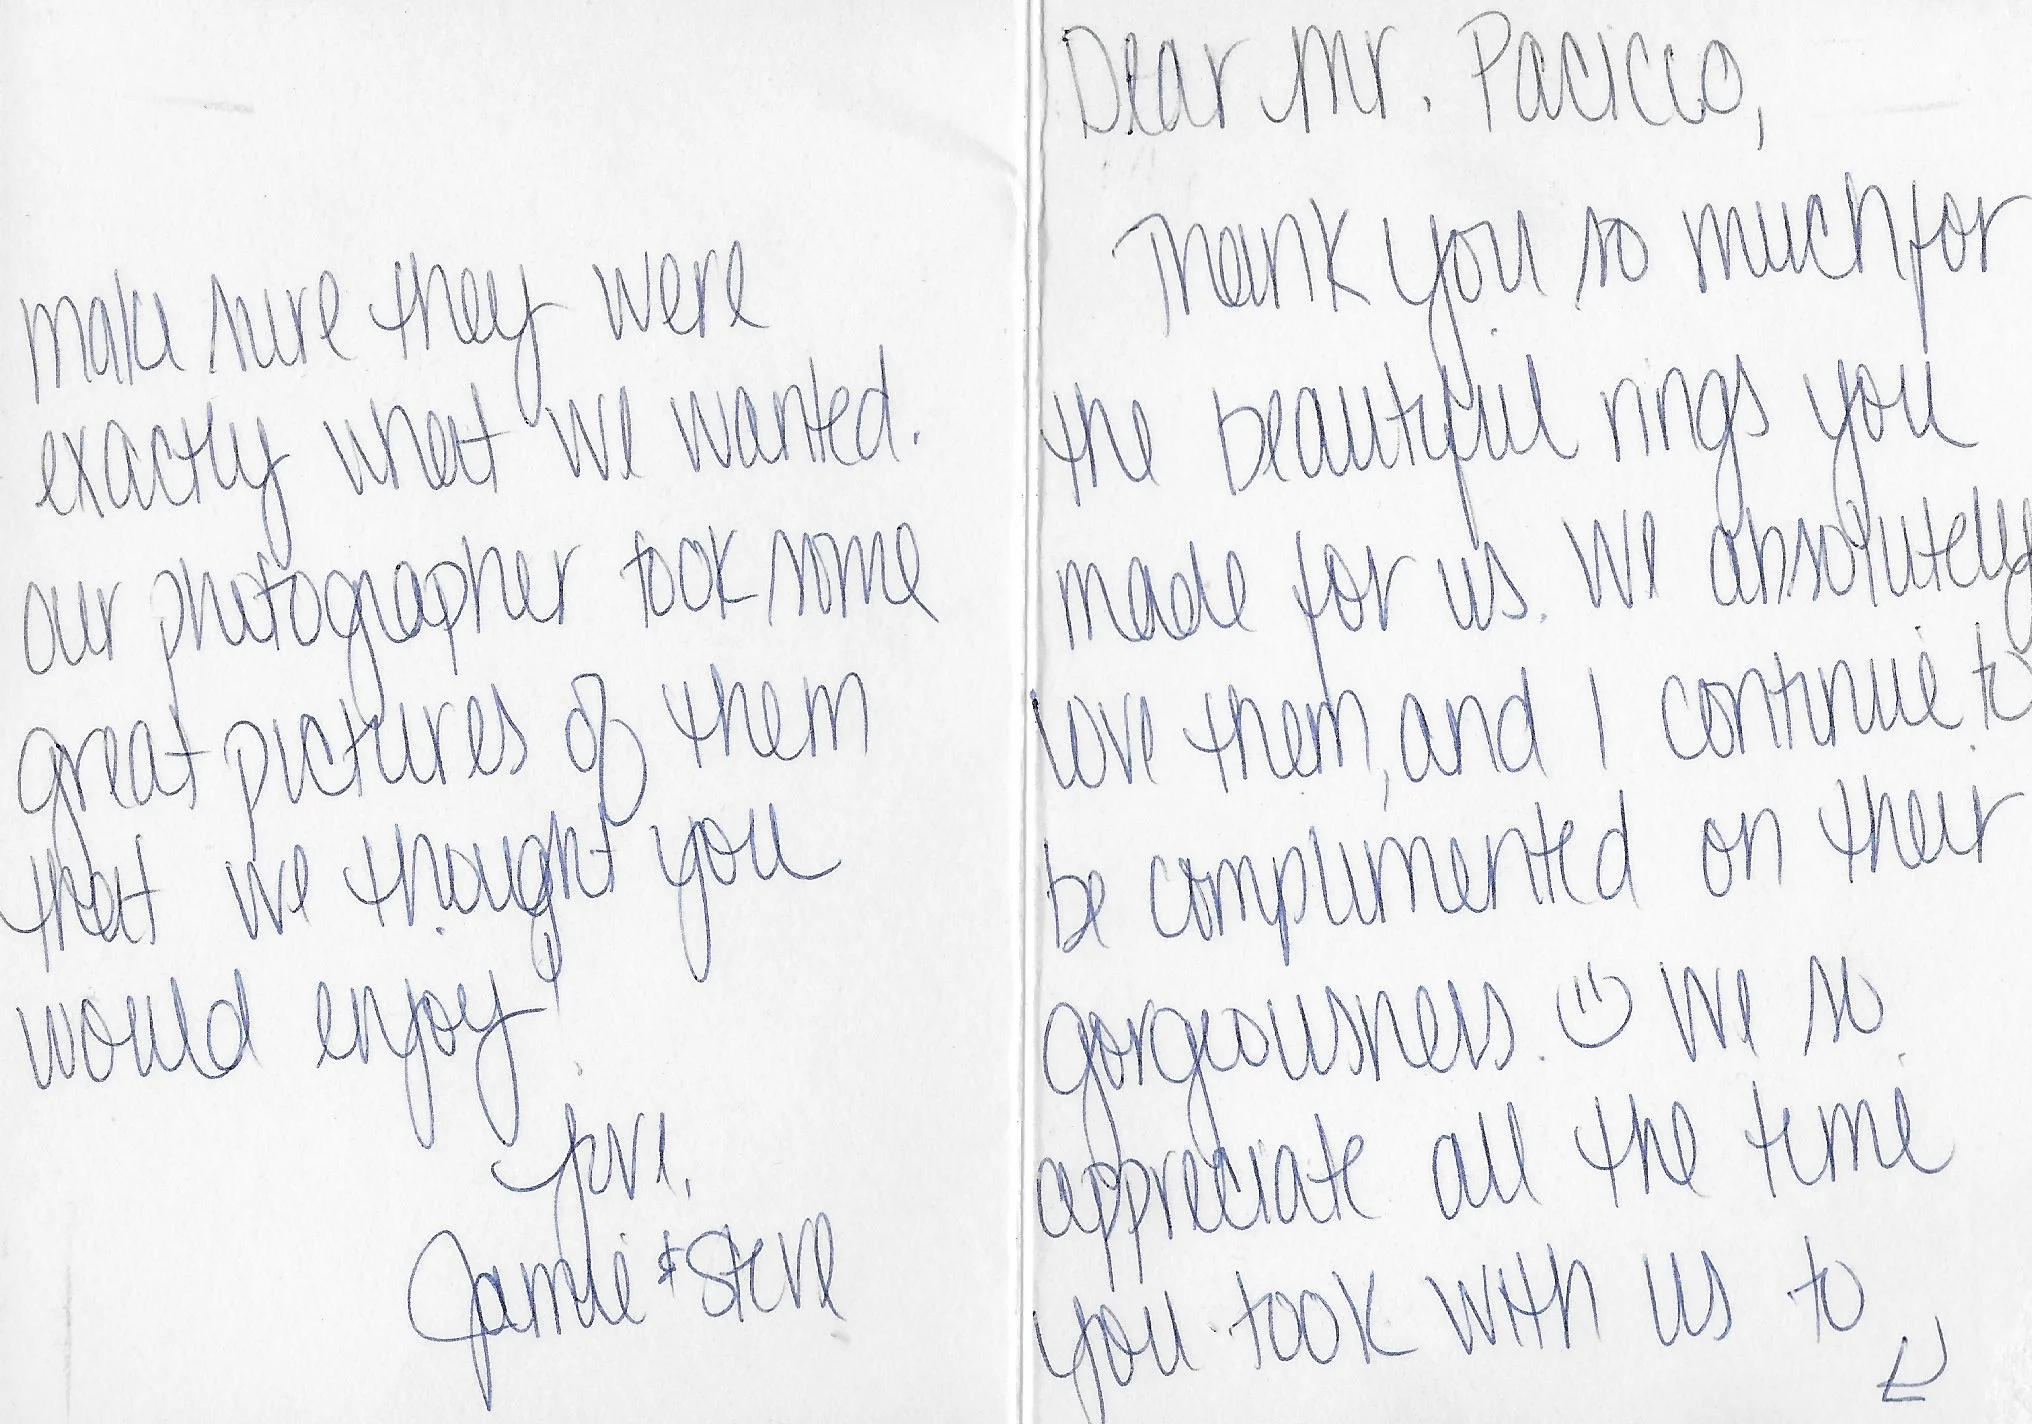 Dear Mr. Pacicco,
Thank you so much for
the beautiful rings you
made for us. We absolutely
love them, and I continue to
be complimented on their
gorgeousness. We so
appreciate all the time
you took with us to
make sure they were
exactly what we wanted.
Our photographer took some
great pictures of them
that we thought you
would enjoy!
Love,
Jamie & Steve